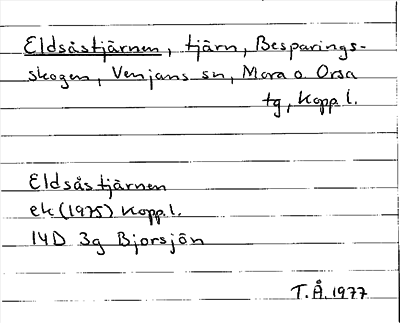 Eldsåstjärnen, tjärn, Besparings-
skogen, Venjans sn, Mora o. Orsa
tg, Kopp l.
Eldsåstjärnen
ek (1975) Kopp. l.
14D 3g Bjorsjön
T.Å. 1977